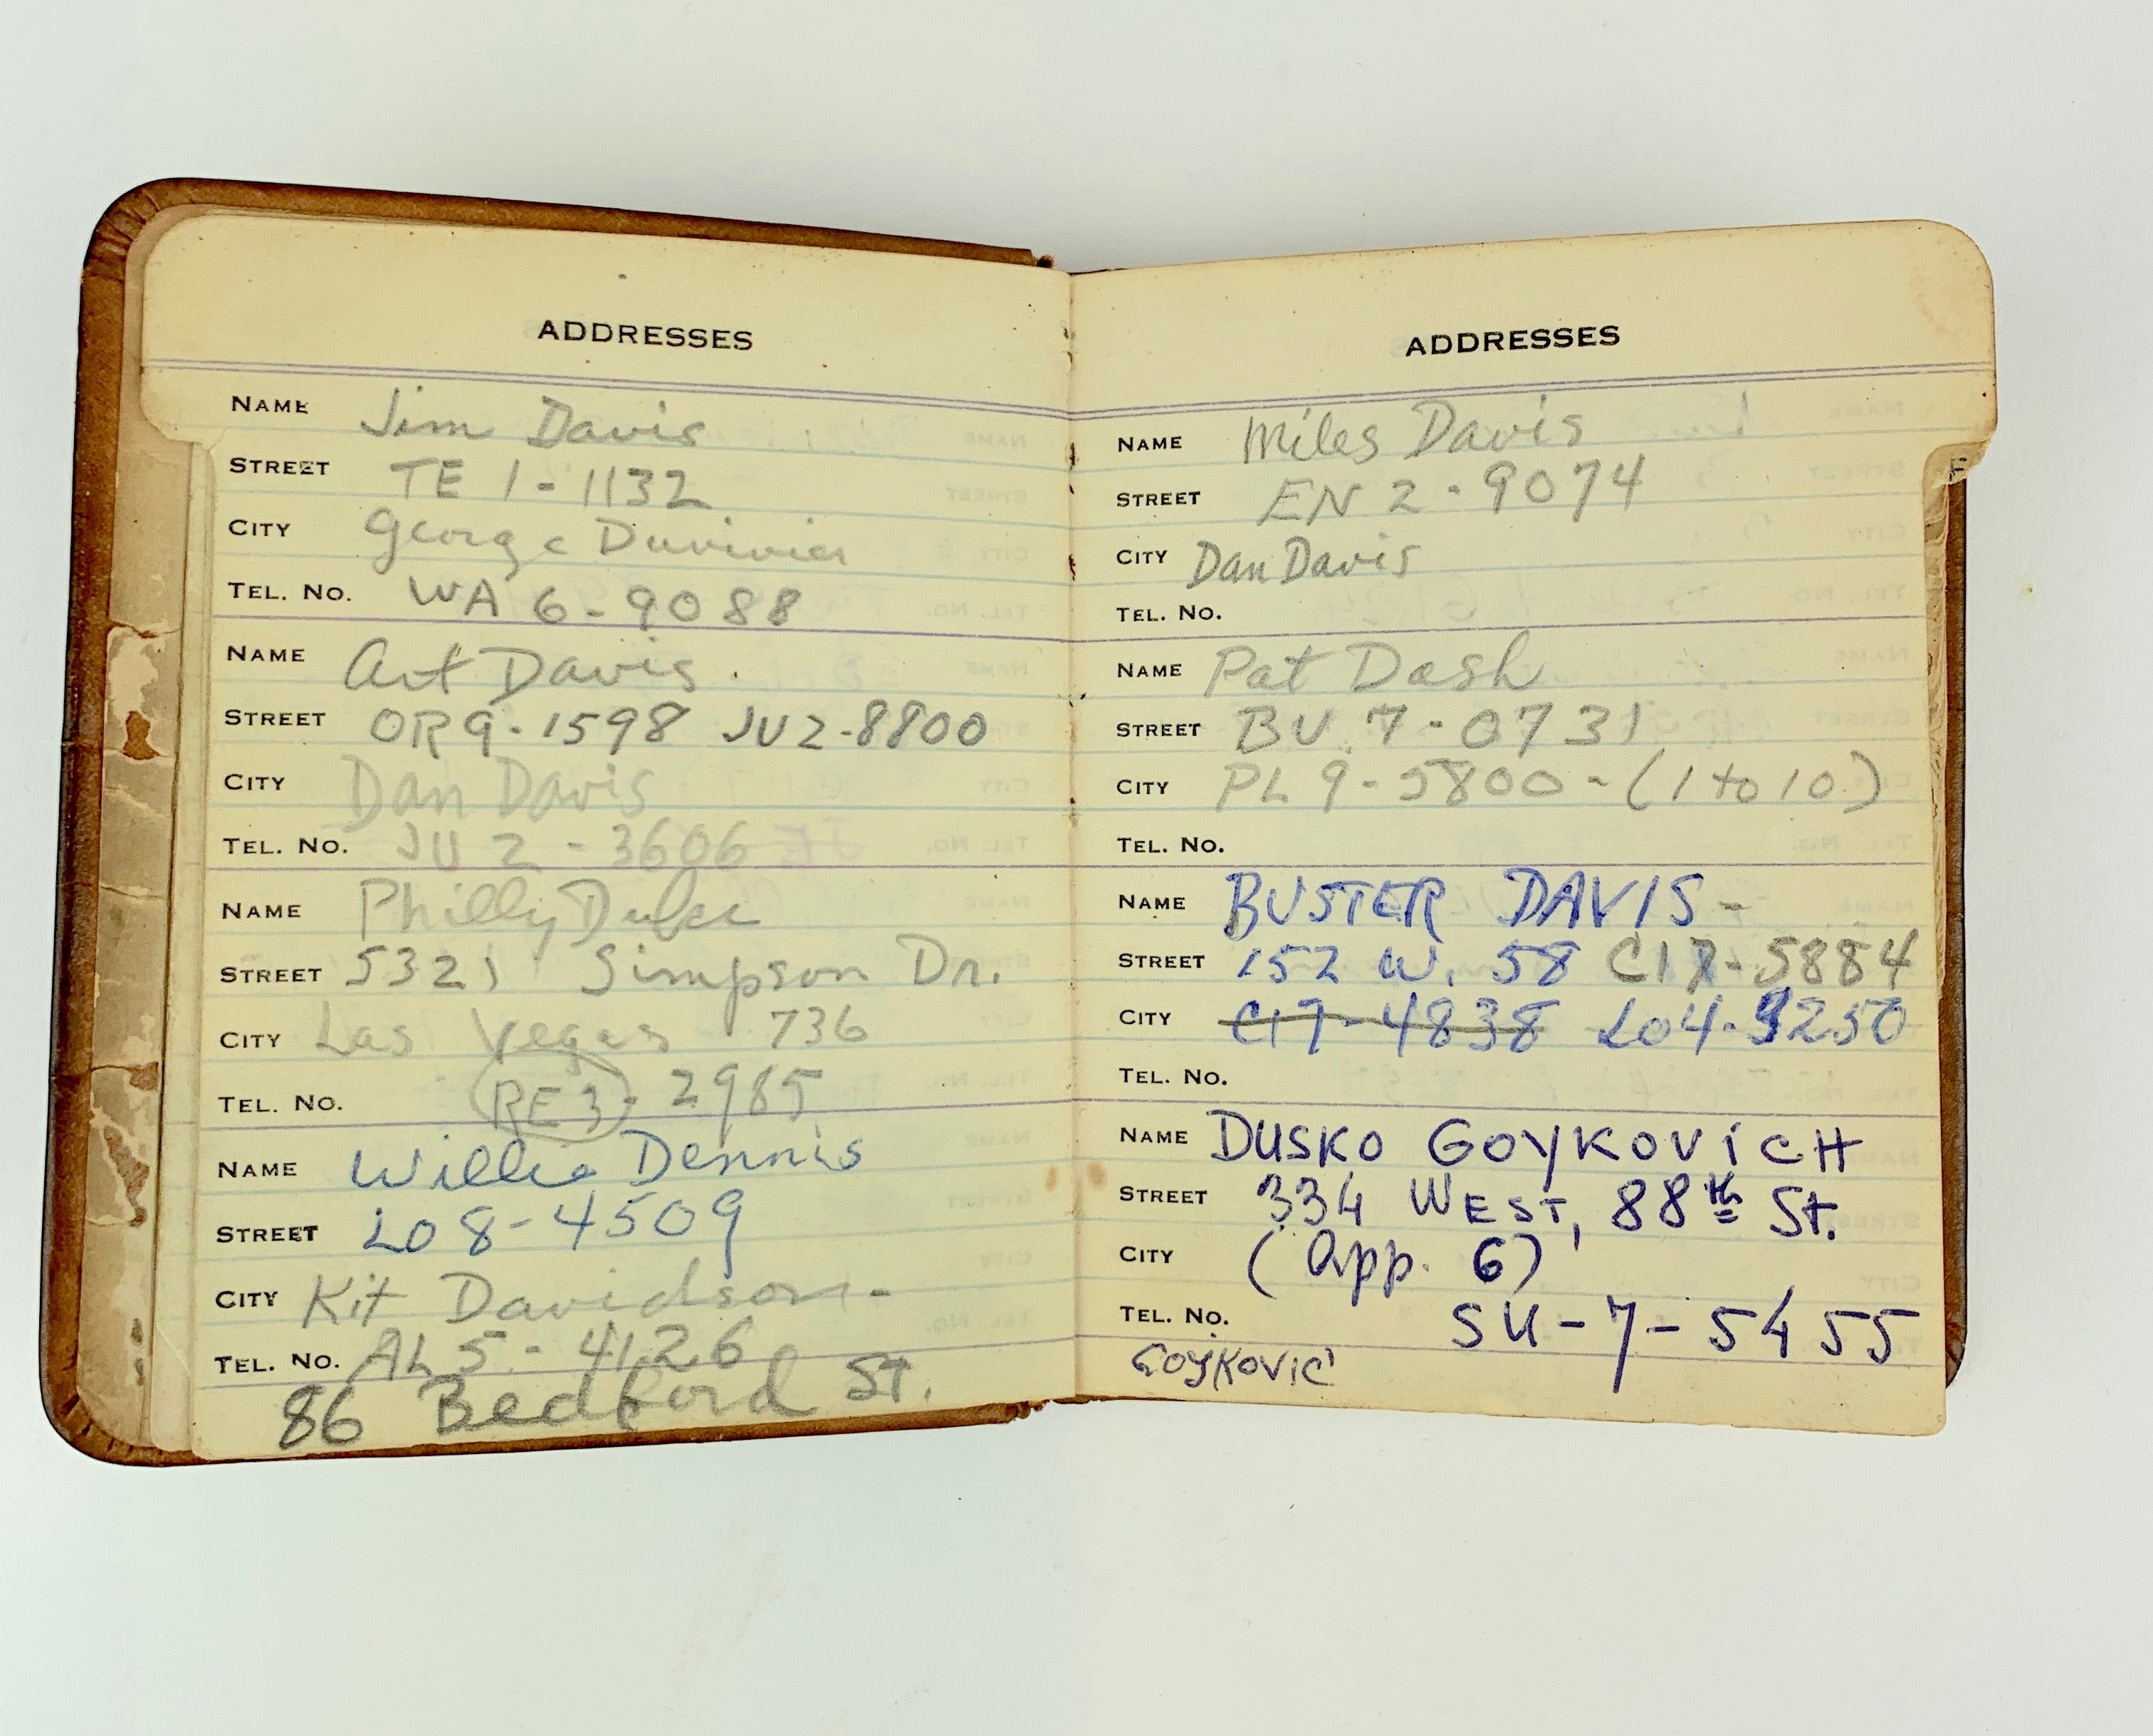 ADDRESSES
NAME Jim Davis
STREET TE 1-1132
CITY George Duvivier
TEL. NO. WA 6-9088
NAME Art Davis.
STREET OR 9-1598 JU 2-8800
CITY Dan Davis
TEL. NO. JU 2-3606
NAME Philly Duke
STREET 5321 Simpson Dr.
CITY Las Vegas 736
TEL. NO. RE 3-2985
NAME Willie Dennis
STREET LO 8-4509
CITY Kit Davidson-
TEL. NO. AL 5-4126
86 Bedford St.
ADDRESSES
NAME Miles Davis
STREET EN 2-9074
CITY Dan Davis
TEL. NO.
NAME Pat Dash
STREET BU. 7-0731
CITY PL 9-5800-(1 to 10)
TEL. NO.
NAME BUSTER DAVIS-
STREET 152 W. 58 CI 7-5884
CITY CI 7-4838 LO 4-9250
TEL. NO.
NAME DUSKO GOYKOVICH
STREET 334 WEST, 88th St.
CITY (App. 6)
TEL. NO. SU-7-5455
GOYKOVIC'
F